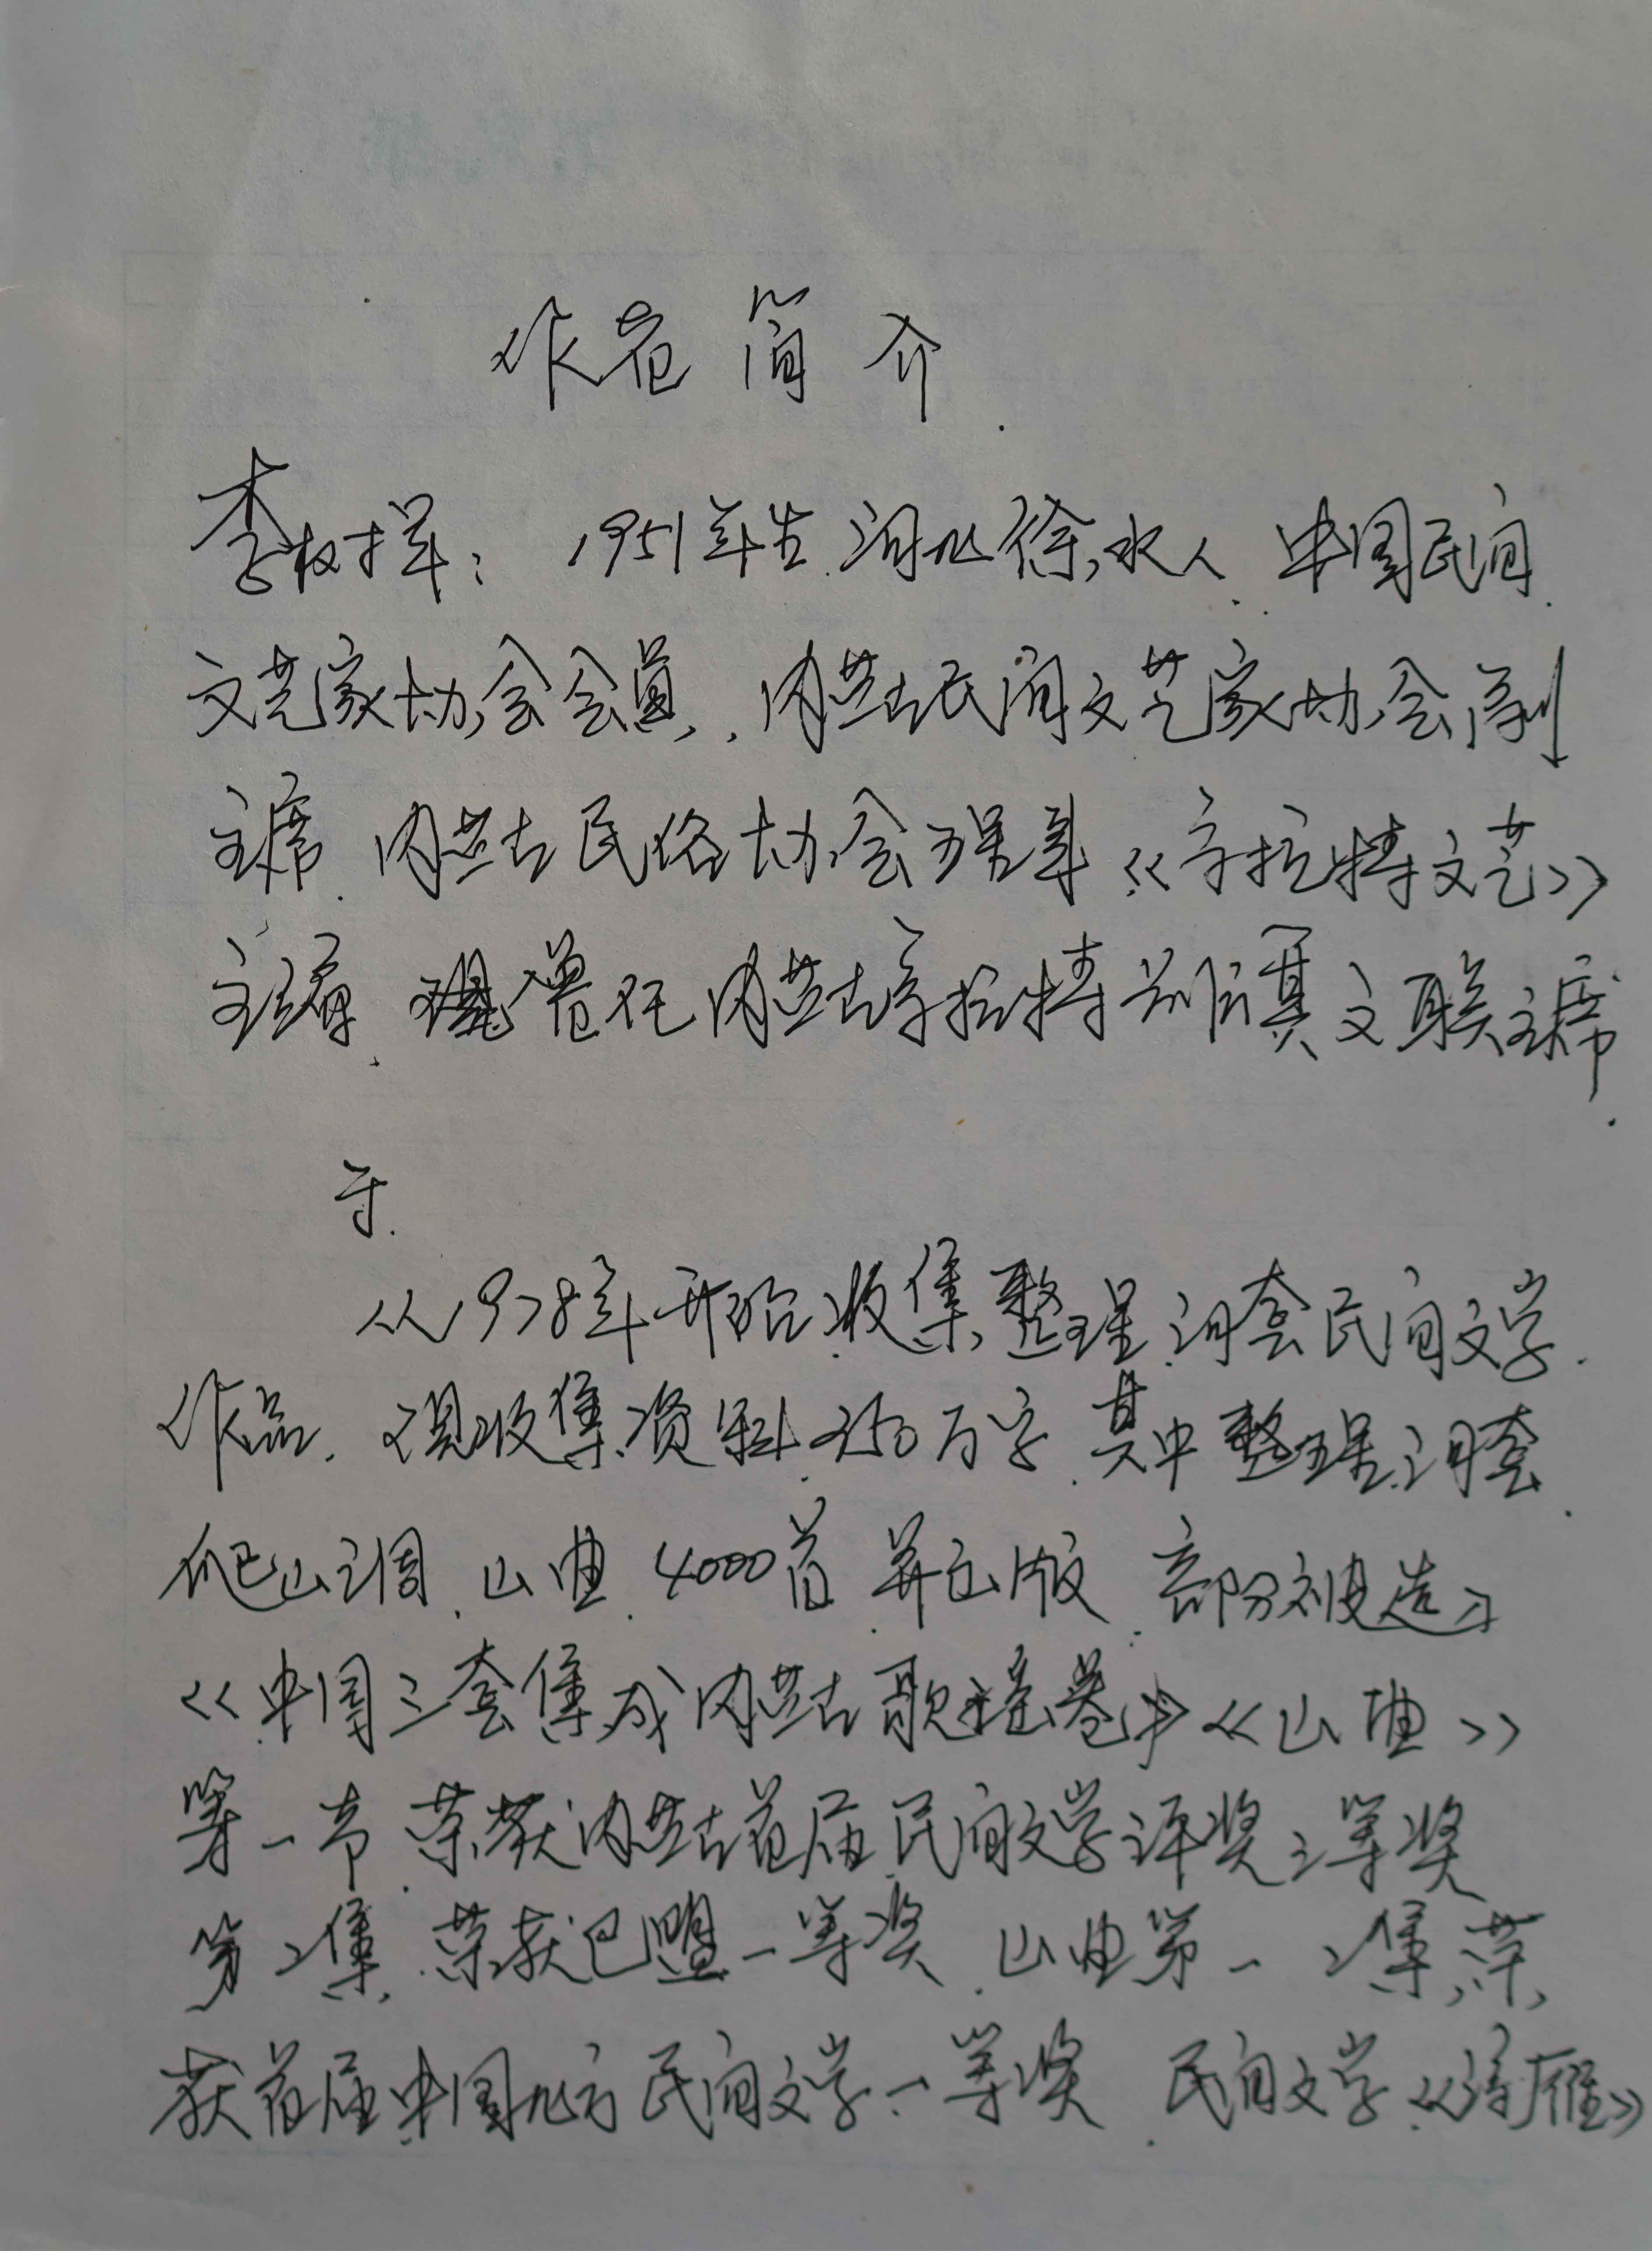 作者简介.
李树军: 1951年生.河北徐水人.中国民间.
文艺家协会会员,.内蒙古民间文艺家协会副
主席.内蒙古民俗协会理事《乌拉特文艺》
主编.现曾任内蒙古乌拉特前旗文联主席.
于.
从1978年开始收集整理河套民间文学.
作品.现收集资料.250万字.其中整理河套.
爬山调.山曲.4000首.并出版.部分被选入
《中国三套集成内蒙古歌谣卷中》《山曲》
第一节.荣获内蒙古首届民间文学评奖三等奖
第二集.荣获巴盟一等奖.山曲第一二集.荣
获首届中国北方民间文学一等奖.民间文学《 雁》